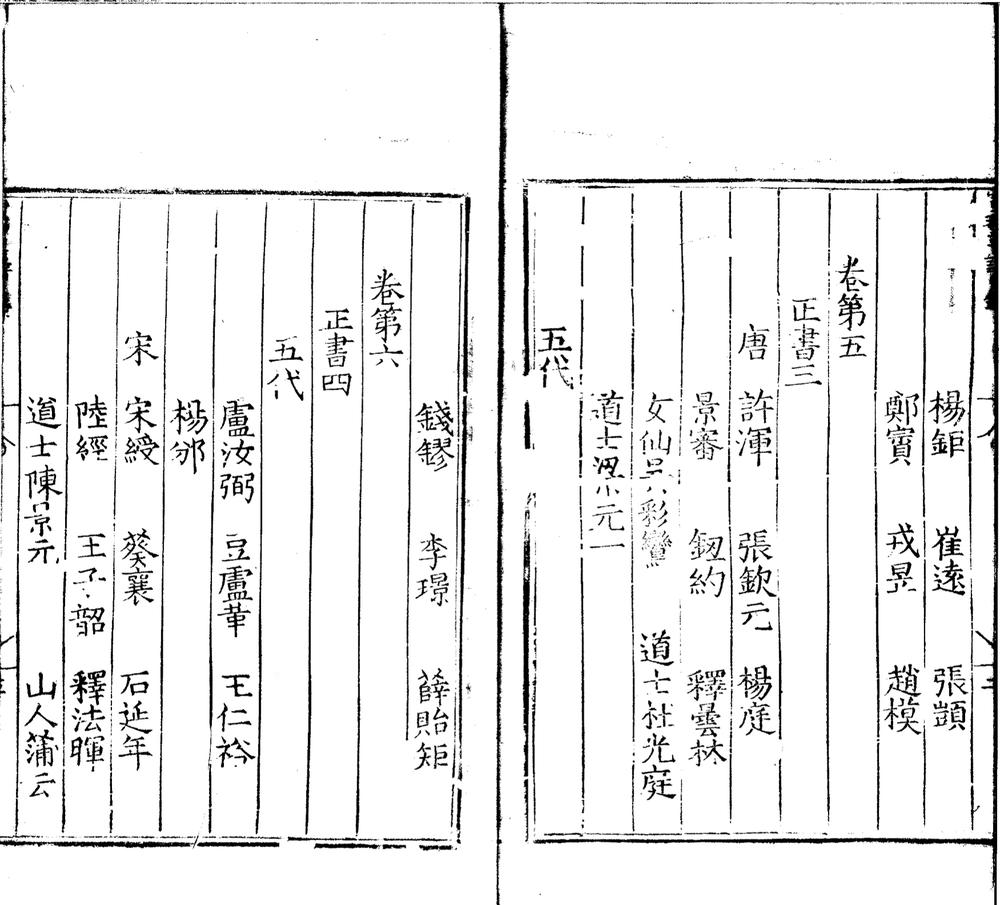 楊鉅 崔遠 張顗
鄭賓 戎昱 趙模
卷第五
正書三
唐 許渾 張欽元 楊庭
景審 釼約 釋曇林
女仙吳彩鸞 道士杜光庭
道士梁元一
五代
錢鏐 李璟 薛貽矩
卷第六
正書四
五代
盧汝弼 豆盧革 王仁裕
楊邠
宋 宋綬 葵襄 石延年
陸經 王子韶 釋法暉
道士陳景元 山人蒲云